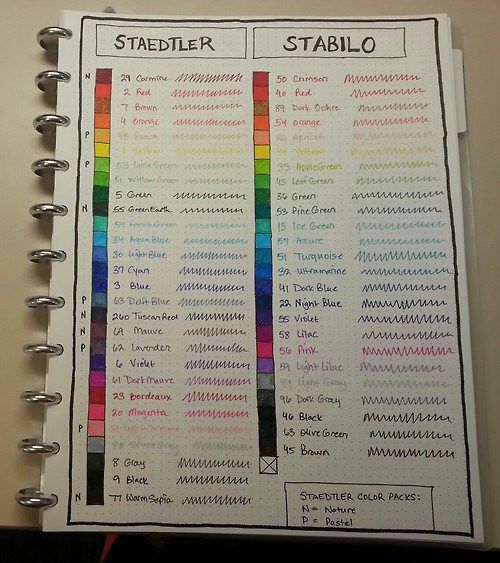 STAEDTLER
N 29 Carmine
2 Red
7 Brown
4 Orange
P 43 Peach
1 Yellow
P 53 Lime Green
51 Willow Green
5 Green
N 55 Green Earth
54 French Green
34 Aqua Blue
30 Light Blue
37 Cyan
3 Blue
P 63 Delft Blue
N 260 Tuscan Red
N 69 Mauve
P 62 Lavender
6 Violet
61 Dark Mauve
23 Bordeaux
20 Magenta
P 21 Light Carmine
82 Silver Gray
8 Gray
9 Black
N 77 Warm Sepia
STABILO
50 Crimson
40 Red
89 Dark Ochre
54 Orange
26 Apricot
44 Yellow
33 Apple Green
43 Leaf Green
36 Green
53 Pine Green
13 Ice Green
57 Azure
51 Turquoise
32 Ultramarine
41 Dark Blue
22 Night Blue
55 Violet
58 Lilac
56 Pink
59 Light Lilac
94 Light Gray
96 Dark Gray
46 Black
63 Olive Green
45 Brown
STAEDTLER COLOR PACKS:
N = Nature
P = Pastel